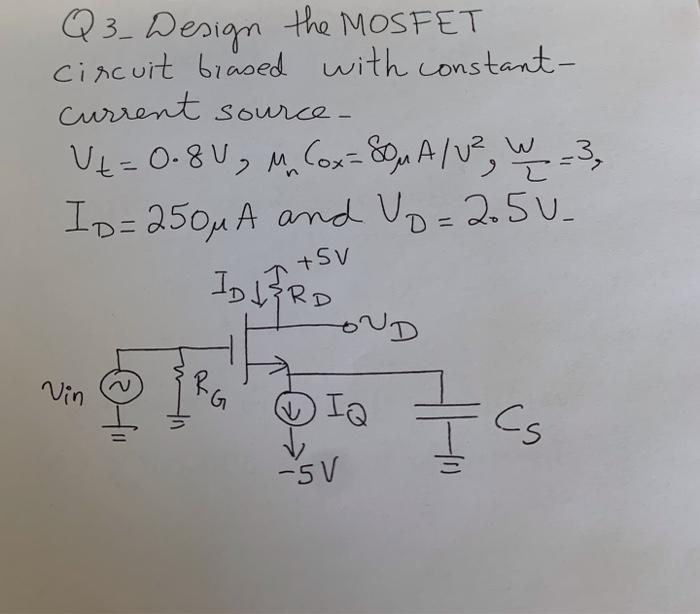 Q3- Design the MOSFET
circuit biased with constant-
current source-
Vt = 0.8V, μnCox = 80μA/V², W/L = 3,
ID = 250μA and VD = 2.5V-
+5V
ID ↓ RD
vD
vin
RG
IQ
CS
-5V